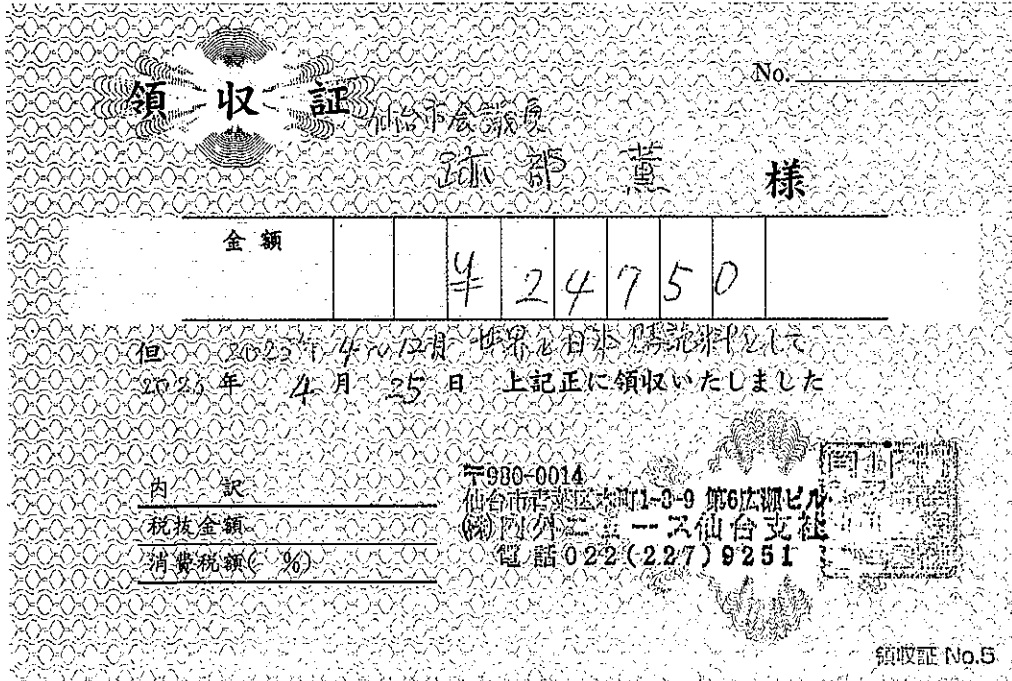 領収証
No.
仙台市会議員
跡部 薫 様
金額 ¥24750
但 2023年4〜12月 世界と日本 購読料として
2023年 4月 25日 上記正に領収いたしました
内 訳
税抜金額
消費税額( %)
〒980-0014
仙台市青葉区本町1-3-9 第6広瀬ビル
(株)内外ニュース仙台支社
電話022(227)9251
領収証 No.5